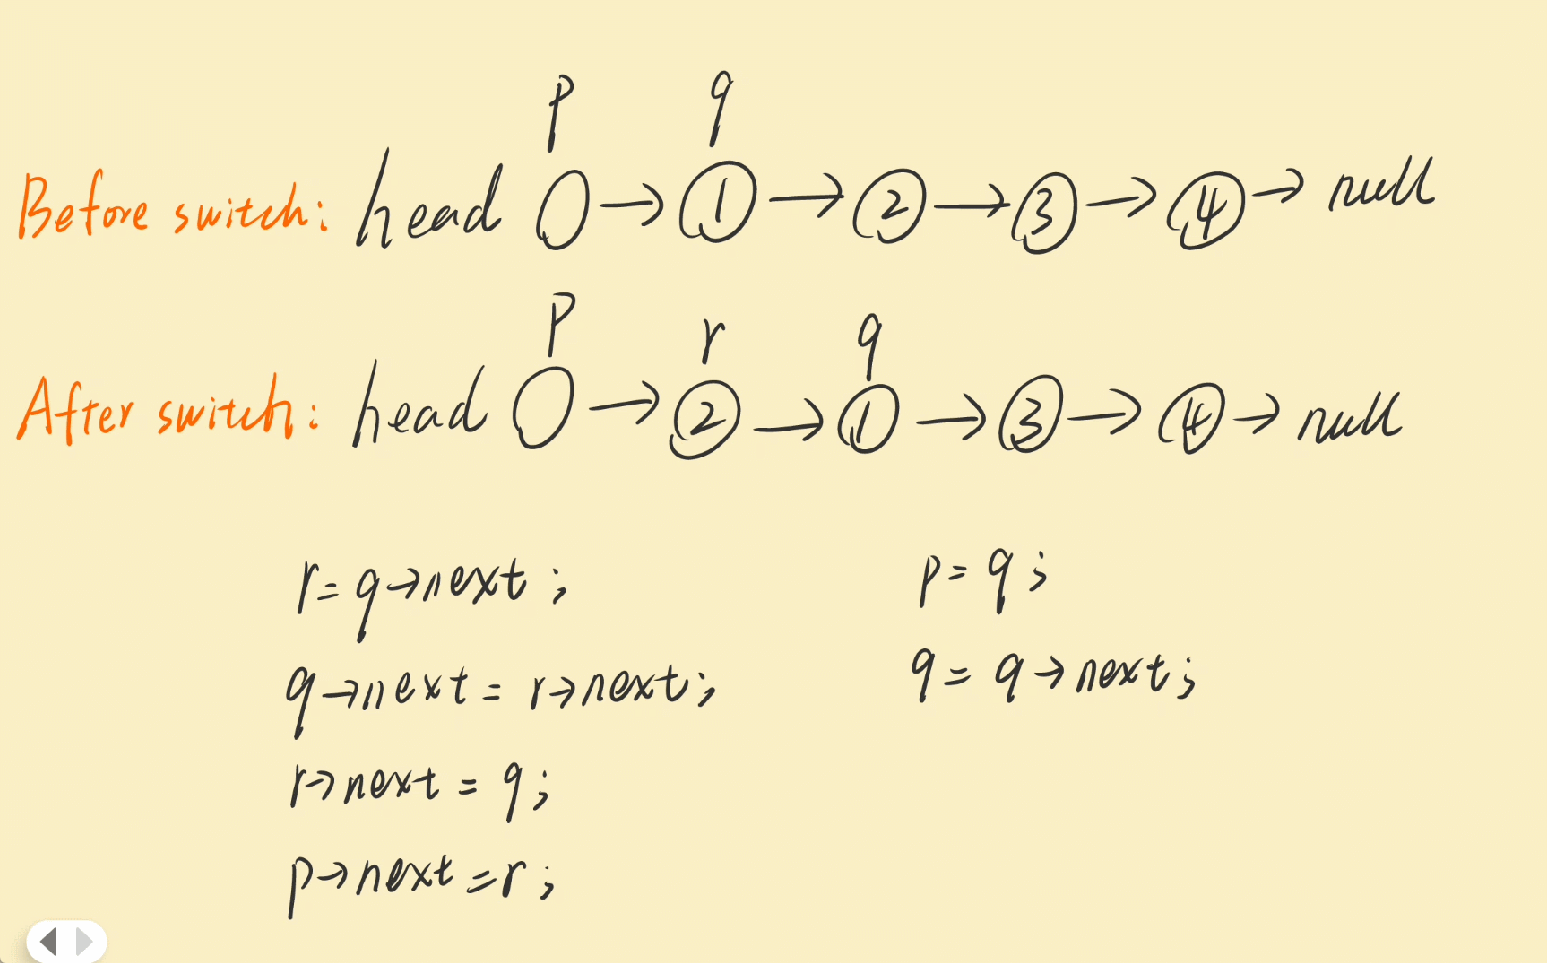 p q
Before switch: head → 1 → 2 → 3 → 4 → null
p r q
After switch: head → 2 → 1 → 3 → 4 → null
r=q→next;
q→next=r→next;
r→next=q;
p→next=r;
p=q;
q=q→next;